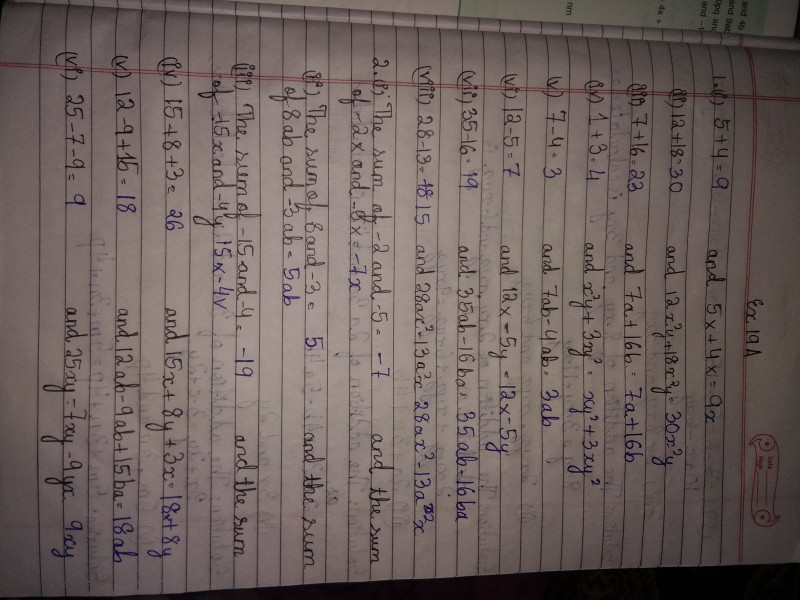 Ex. 19A
1. i) 5+4=9 and 5x+4x=9x
(ii) 12+18=30 and 12x²y+18x²y=30x²y
(iii) 7+16=23 and 7a+16b=7a+16b
(iv) 1+3=4 and x²y+3xy²= xy²+3xy²
(v) 7-4=3 and 7ab-4ab=3ab
(vi) 12-5=7 and 12x-5y=12x-5y
(vii) 35-16=19 and 35ab-16ba=35ab-16ba
(viii) 28-13= 15 and 28ax²-13a²x 28ax²-13a²x
2. i) The sum of -2 and -5= -7 and the sum
of -2x and -5x= -7x
(ii) The sum of 8 and -3= 5 and the sum
of 8ab and -3ab= 5ab
(iii) The sum of -15 and -4= -19 and the sum
of -15x and -4y 15x-4y
(iv) 15+8+3= 26 and 15x+8y+3x=18x+8y
(v) 12-9+15=18 and 12ab-9ab+15ba=18ab
(vi) 25-7-9=9 and 25xy-7xy-9yx 9xy
and 4b
and -1
nm